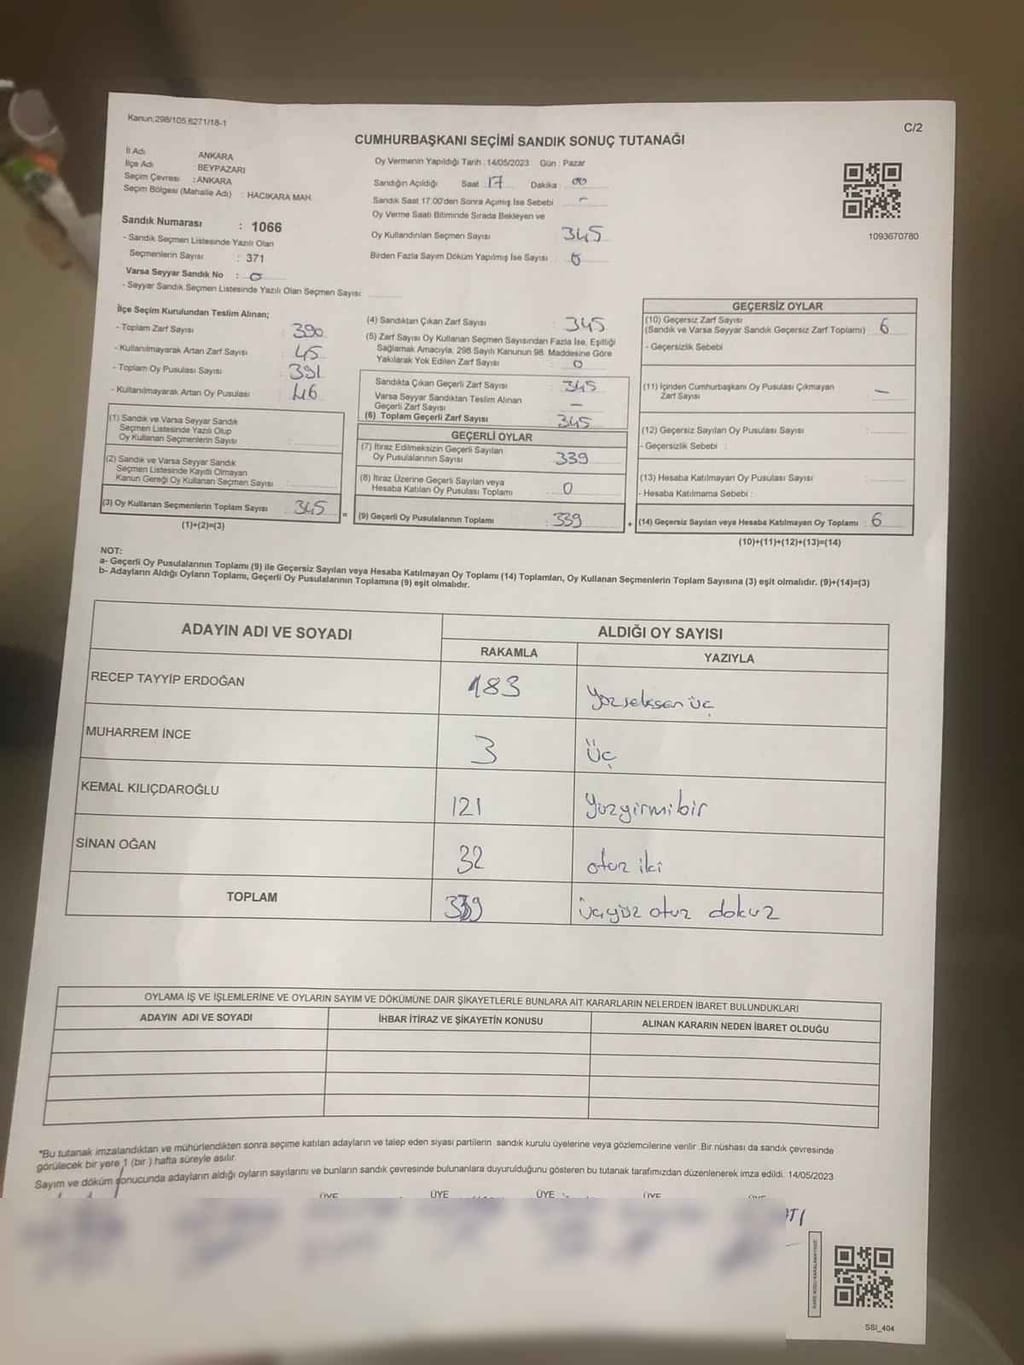 Kanun:298/105,6271/18-1
C/2
CUMHURBAŞKANI SEÇİMİ SANDIK SONUÇ TUTANAĞI
İl Adı ANKARA
İlçe Adı BEYPAZARI
Seçim Çevresi : ANKARA
Seçim Bölgesi (Mahalle Adı) : HACIKARA MAH.
Sandık Numarası : 1066
- Sandık Seçmen Listesinde Yazılı Olan
Seçmenlerin Sayısı : 371
Varsa Seyyar Sandık No : 0
- Seyyar Sandık Seçmen Listesinde Yazılı Olan Seçmen Sayısı
Oy Vermenin Yapıldığı Tarih : 14/05/2023 Gün : Pazar
Sandığın Açıldığı Saat 17 Dakika 00
Sandık Saat 17.00'den Sonra Açılmış İse Sebebi -
Oy Verme Saati Bitiminde Sırada Bekleyen ve
Oy Kullandırılan Seçmen Sayısı 345
Birden Fazla Sayım Döküm Yapılmış İse Sayısı 0
1093670780
İlçe Seçim Kurulundan Teslim Alınan;
- Toplam Zarf Sayısı 390
- Kullanılmayarak Artan Zarf Sayısı 45
- Toplam Oy Pusulası Sayısı 391
- Kullanılmayarak Artan Oy Pusulası 46
(1) Sandık ve Varsa Seyyar Sandık
Seçmen Listesinde Yazılı Olup
Oy Kullanan Seçmenlerin Sayısı
(2) Sandık ve Varsa Seyyar Sandık
Seçmen Listesinde Kayıtlı Olmayan
Kanun Gereği Oy Kullanan Seçmen Sayısı
(3) Oy Kullanan Seçmenlerin Toplam Sayısı 345
(1)+(2)=(3)
(4) Sandıktan Çıkan Zarf Sayısı 345
(5) Zarf Sayısı Oy Kullanan Seçmen Sayısından Fazla İse, Eşitliği
Sağlamak Amacıyla, 298 Sayılı Kanunun 98. Maddesine Göre
Yakılarak Yok Edilen Zarf Sayısı 0
Sandıkta Çıkan Geçerli Zarf Sayısı 345
Varsa Seyyar Sandıktan Teslim Alınan
Geçerli Zarf Sayısı -
(6) Toplam Geçerli Zarf Sayısı 345
GEÇERLİ OYLAR
(7) İtiraz Edilmeksizin Geçerli Sayılan
Oy Pusulalarının Sayısı 339
(8) İtiraz Üzerine Geçerli Sayılan veya
Hesaba Katılan Oy Pusulası Toplamı 0
(9) Geçerli Oy Pusulalarının Toplamı 339
GEÇERSİZ OYLAR
(10) Geçersiz Zarf Sayısı
(Sandık ve Varsa Seyyar Sandık Geçersiz Zarf Toplamı) 6
- Geçersizlik Sebebi
(11) İçinden Cumhurbaşkanı Oy Pusulası Çıkmayan
Zarf Sayısı -
(12) Geçersiz Sayılan Oy Pusulası Sayısı
- Geçersizlik Sebebi :
(13) Hesaba Katılmayan Oy Pusulası Sayısı
- Hesaba Katılmama Sebebi :
(14) Geçersiz Sayılan veya Hesaba Katılmayan Oy Toplamı 6
(10)+(11)+(12)+(13)=(14)
NOT:
a- Geçerli Oy Pusulalarının Toplamı (9) ile Geçersiz Sayılan veya Hesaba Katılmayan Oy Toplamı (14) Toplamları, Oy Kullanan Seçmenlerin Toplam Sayısına (3) eşit olmalıdır. (9)+(14)=(3)
b- Adayların Aldığı Oyların Toplamı, Geçerli Oy Pusulalarının Toplamına (9) eşit olmalıdır.
ADAYIN ADI VE SOYADI
ALDIĞI OY SAYISI
RAKAMLA YAZIYLA
RECEP TAYYİP ERDOĞAN 183 Yüzseksen üç
MUHARREM İNCE 3 üç
KEMAL KILIÇDAROĞLU 121 Yüzyirmibir
SİNAN OĞAN 32 otuz iki
TOPLAM 339 üçyüz otuz dokuz
OYLAMA İŞ VE İŞLEMLERİNE VE OYLARIN SAYIM VE DÖKÜMÜNE DAİR ŞİKAYETLERLE BUNLARA AİT KARARLARIN NELERDEN İBARET BULUNDUKLARI
ADAYIN ADI VE SOYADI İHBAR İTİRAZ VE ŞİKAYETİN KONUSU ALINAN KARARIN NEDEN İBARET OLDUĞU
*Bu tutanak imzalandıktan ve mühürlendikten sonra seçime katılan adayların ve talep eden siyasi partilerin sandık kurulu üyelerine veya gözlemcilerine verilir. Bir nüshası da sandık çevresinde
görülecek bir yere 1 (bir) hafta süreyle asılır.
Sayım ve döküm sonucunda adayların aldığı oyların sayılarını ve bunların sandık çevresinde bulunanlara duyurulduğunu gösteren bu tutanak tarafımızdan düzenlenerek imza edildi. 14/05/2023
ÜYE ÜYE ÜYE ÜYE
SSI_404